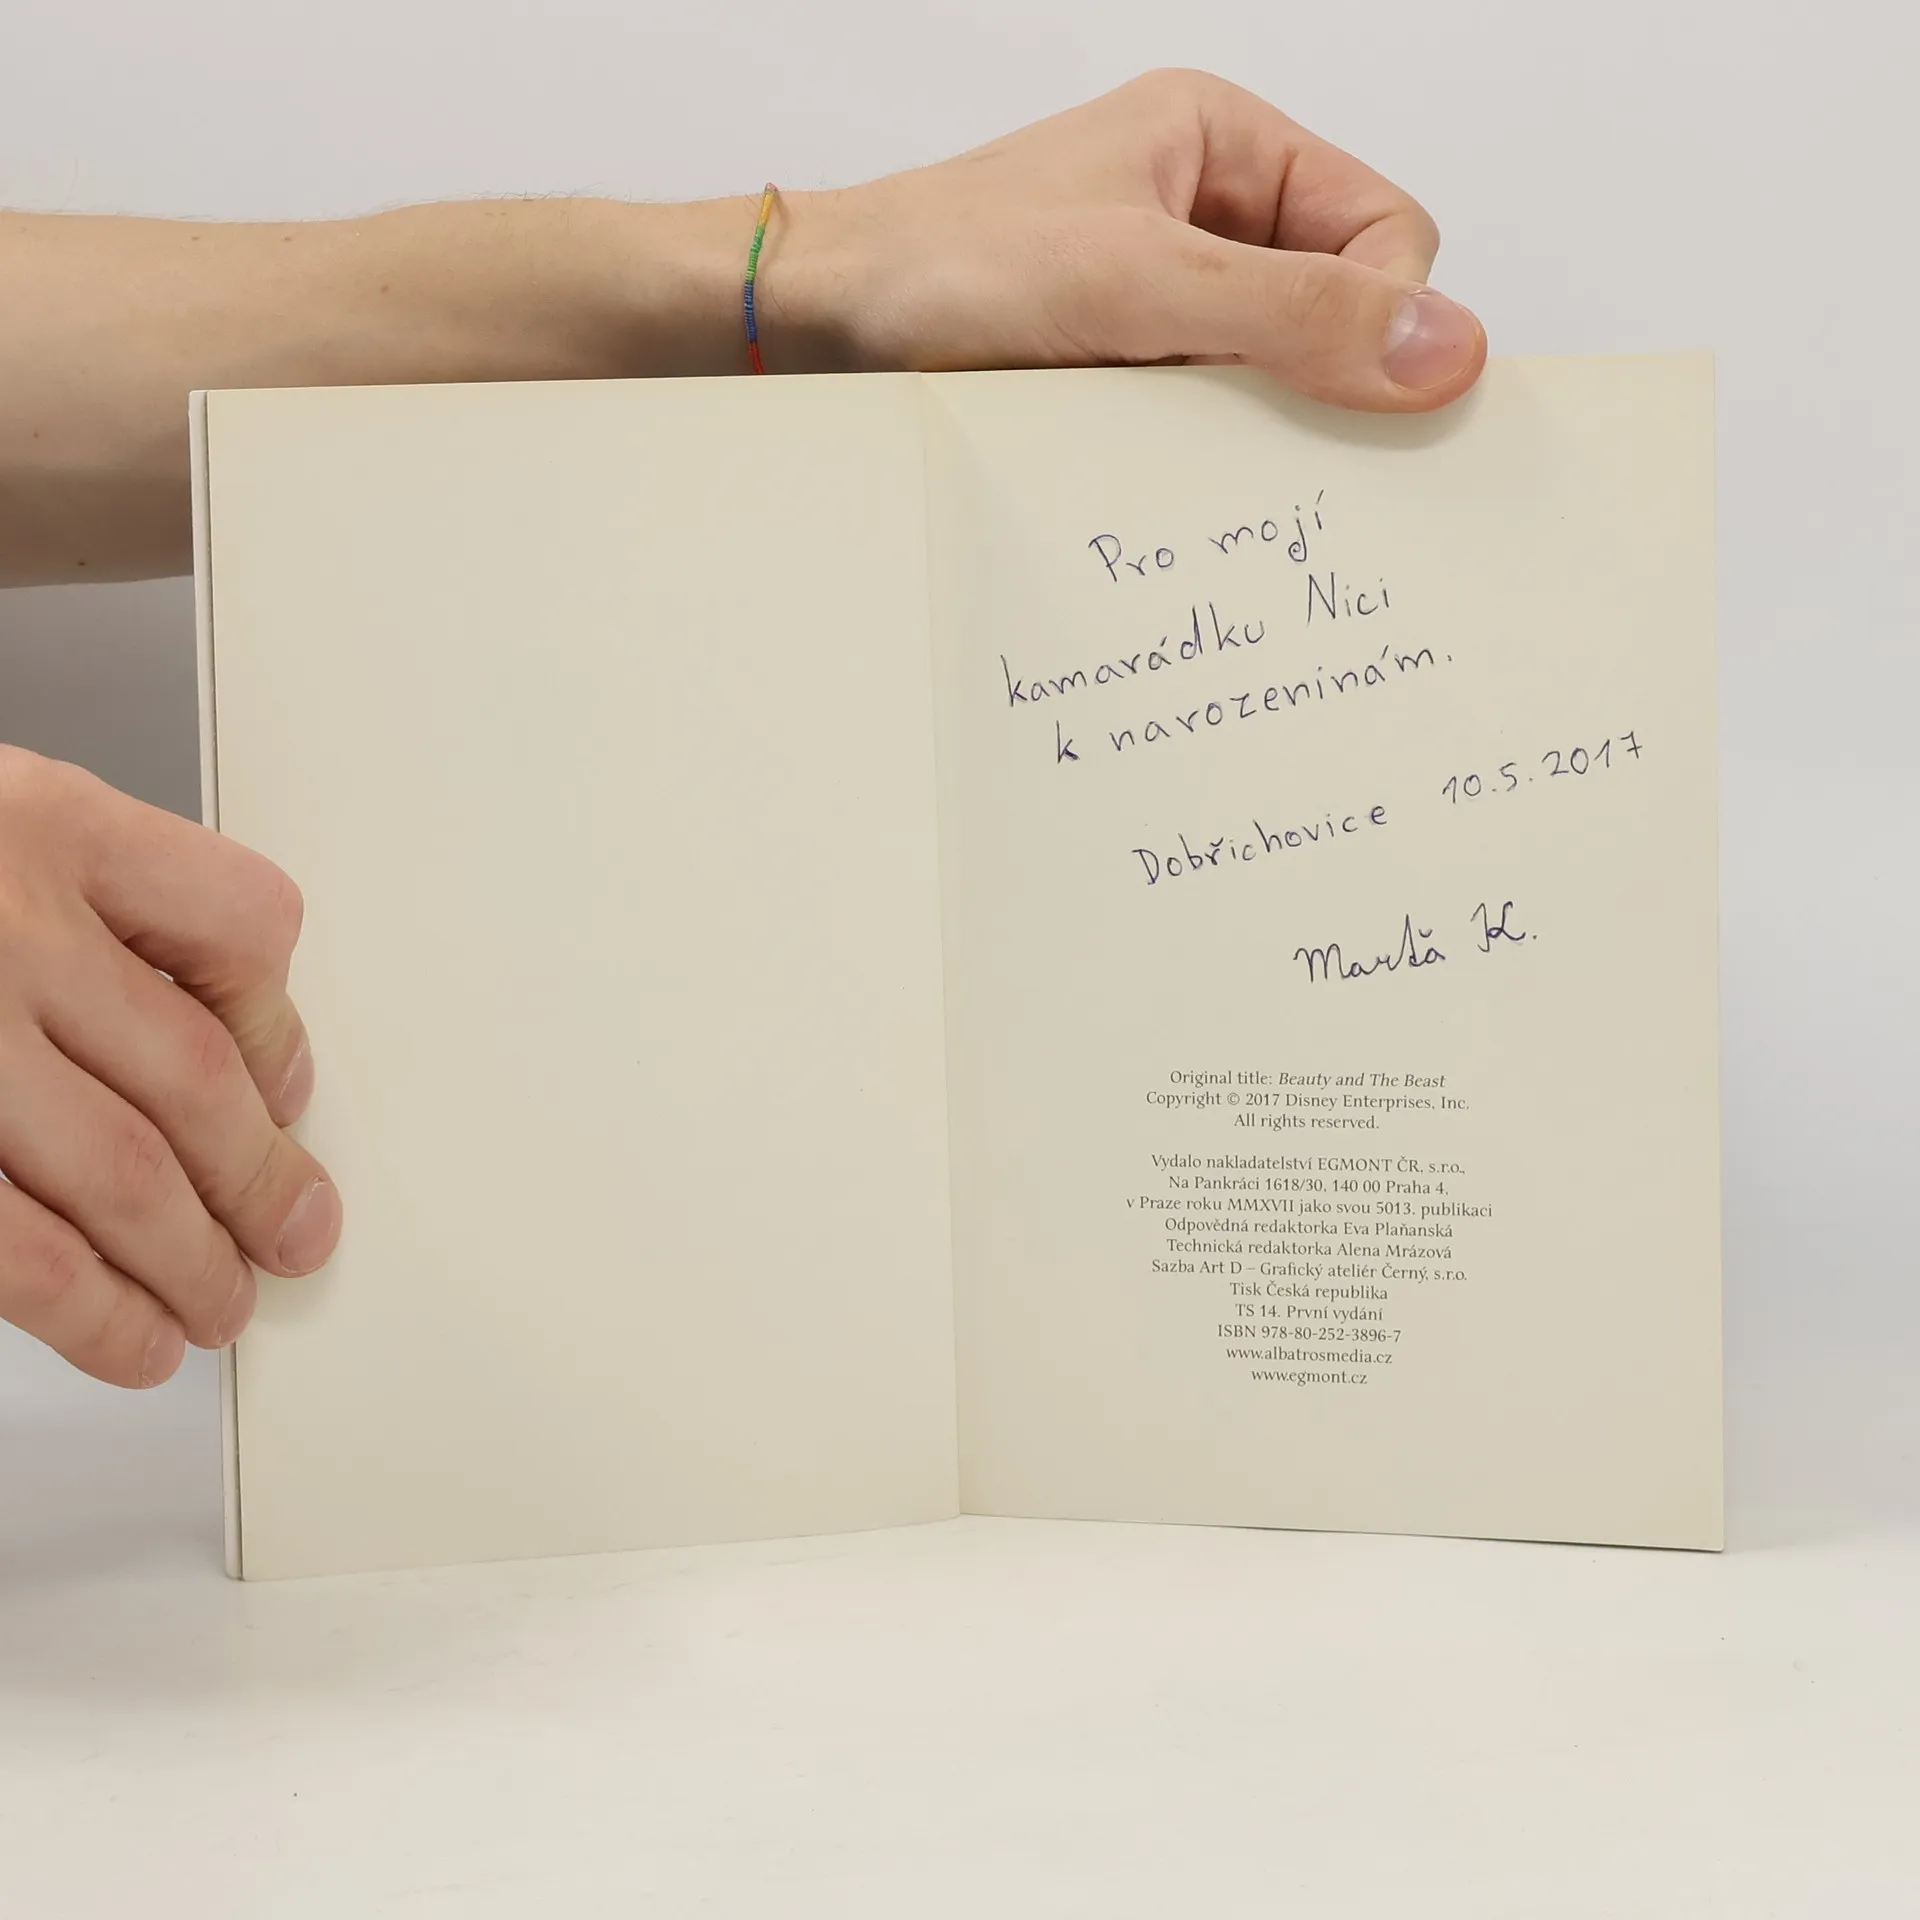 Pro mojí
kamarádku Nici
k narozeninám.
Dobřichovice 10.5.2017
Marťa K.
Original title: Beauty and The Beast
Copyright © 2017 Disney Enterprises, Inc.
All rights reserved.
Vydalo nakladatelství EGMONT ČR, s.r.o.,
Na Pankráci 1618/30, 140 00 Praha 4,
v Praze roku MMXVII jako svou 5013. publikaci
Odpovědná redaktorka Eva Plaňanská
Technická redaktorka Alena Mrázová
Sazba Art D – Grafický ateliér Černý, s.r.o.
Tisk Česká republika
TS 14. První vydání
ISBN 978-80-252-3896-7
www.albatrosmedia.cz
www.egmont.cz